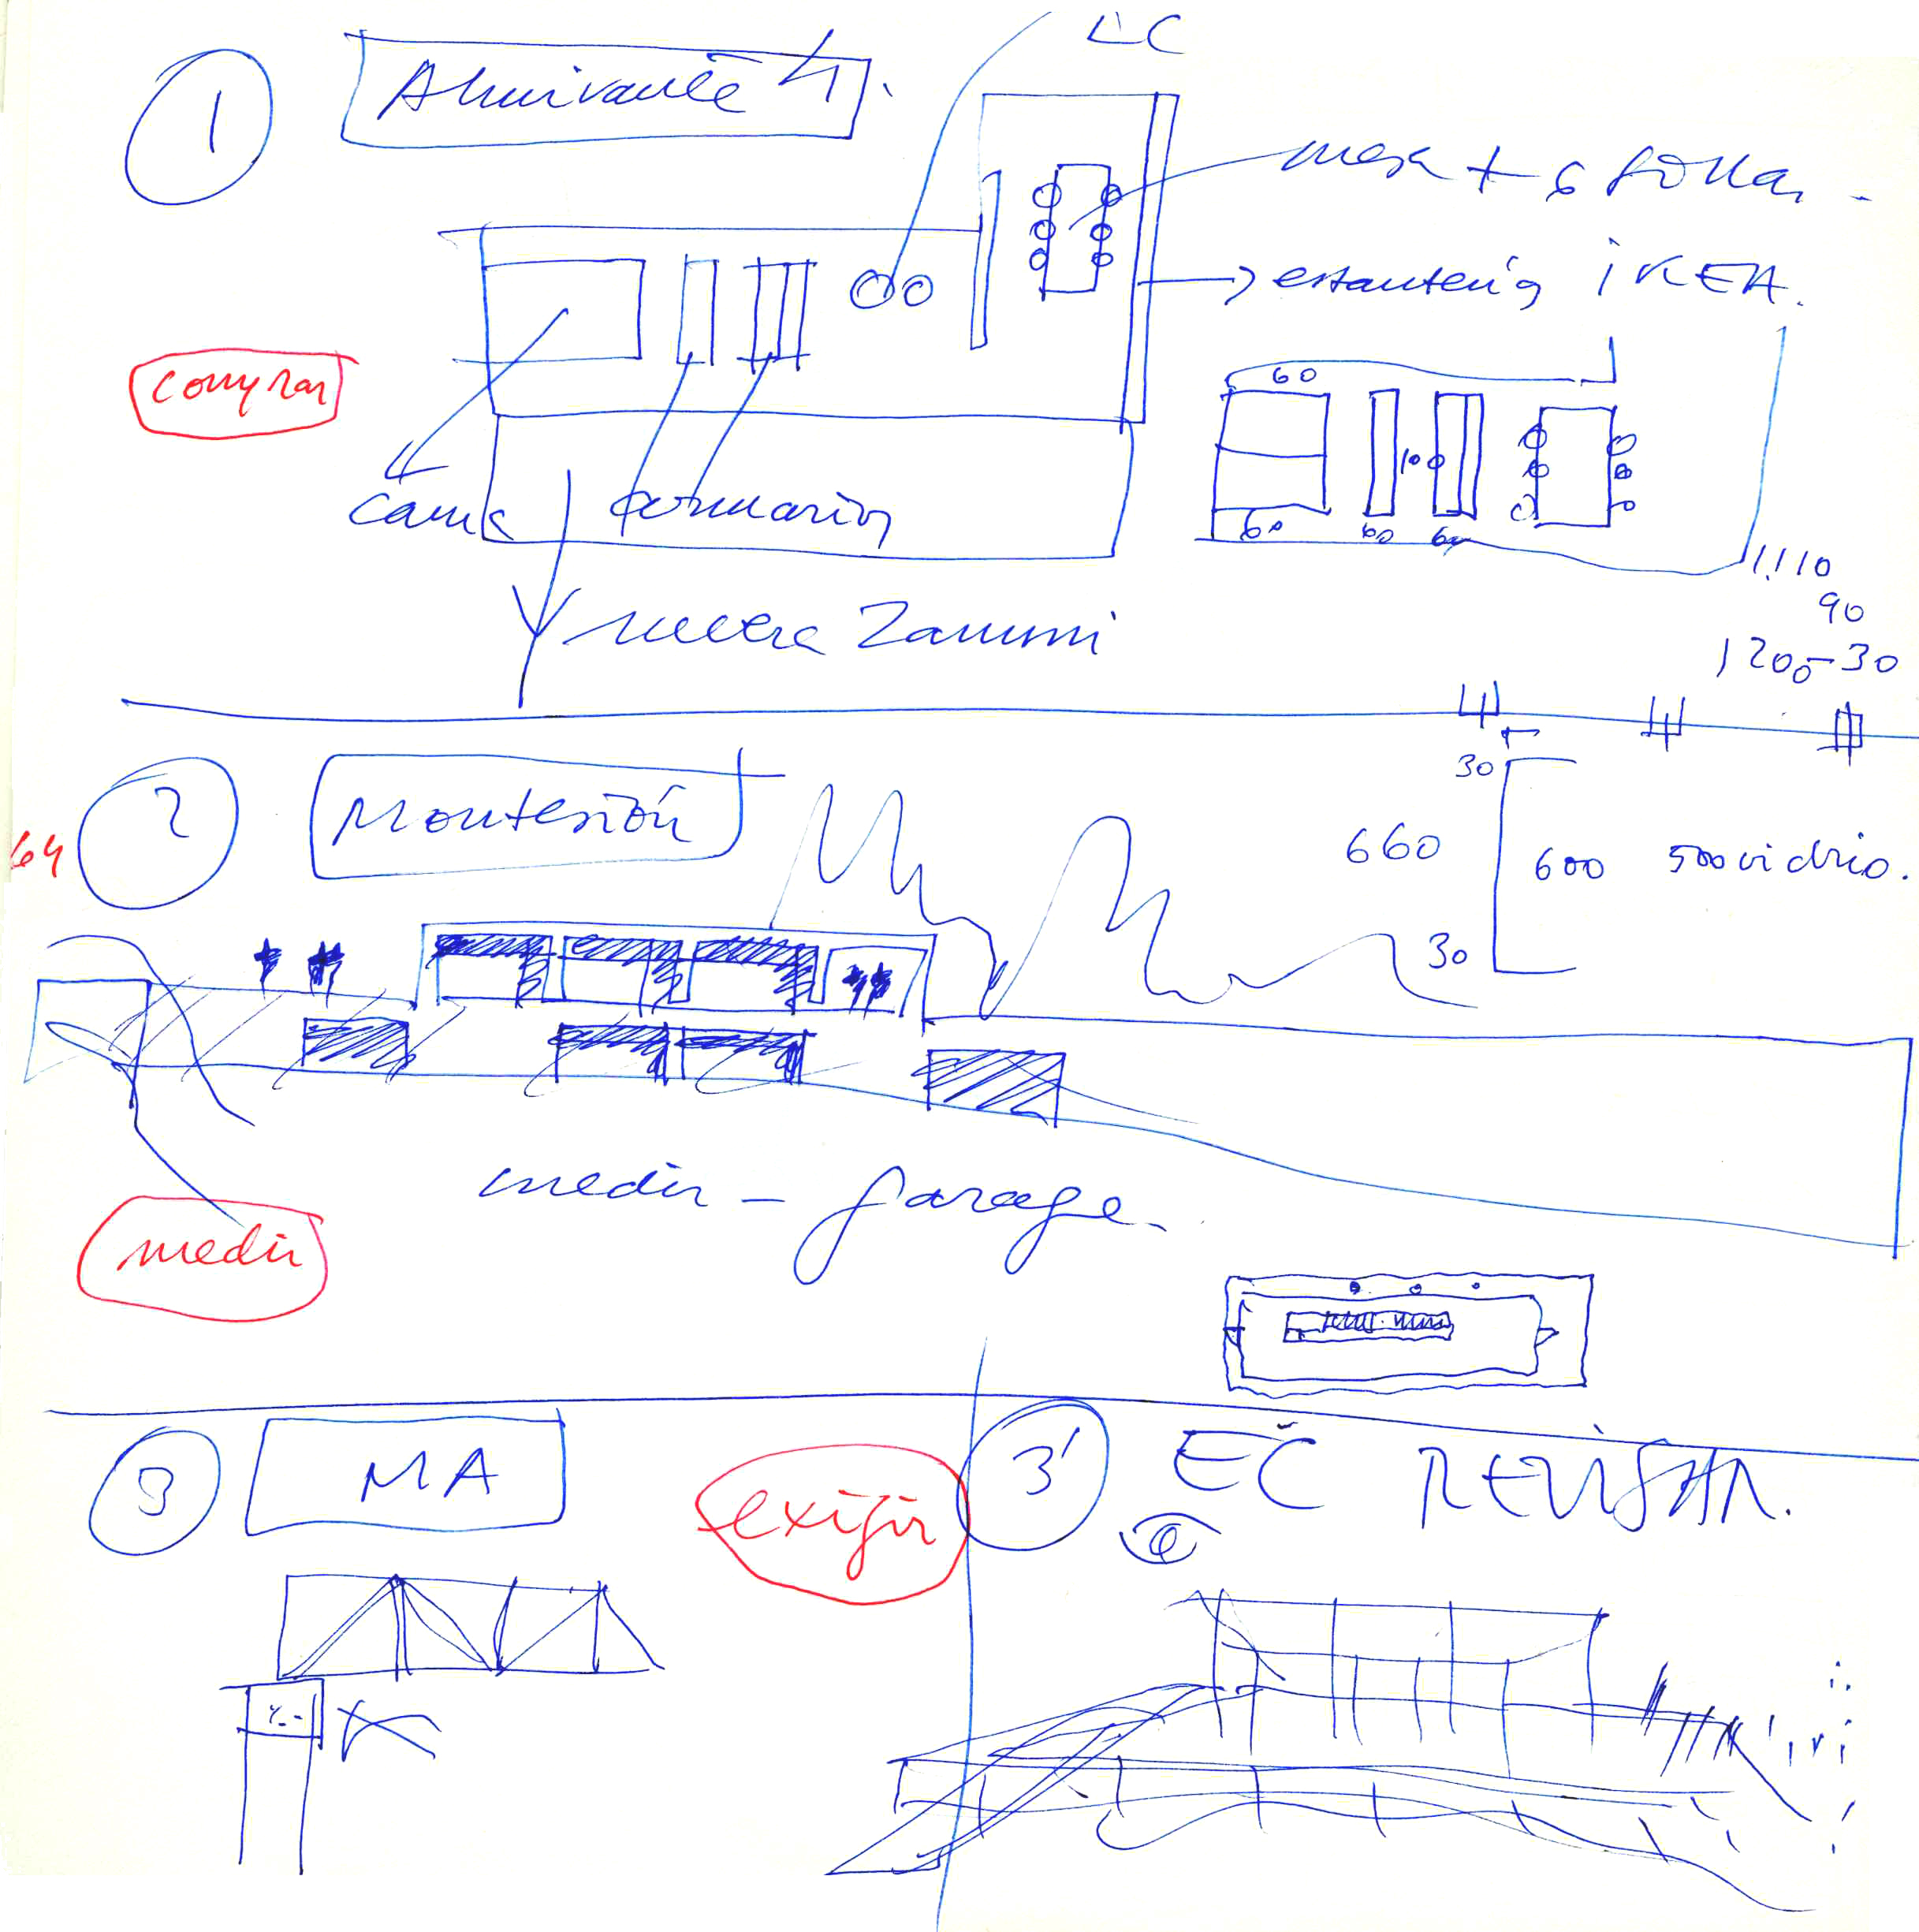 LC
1
Almirante 4.
mesa + 6 sillas -
estantería IKEA.
comprar
60
100
60 60 60
cama armarios
1.110
90
nevera Zanussi
1200-30
2
Montesión
64
30
660
600 500 vidrio.
30
medir - garage
medir
3
MA
exigir
3'
EČ REVISAR.